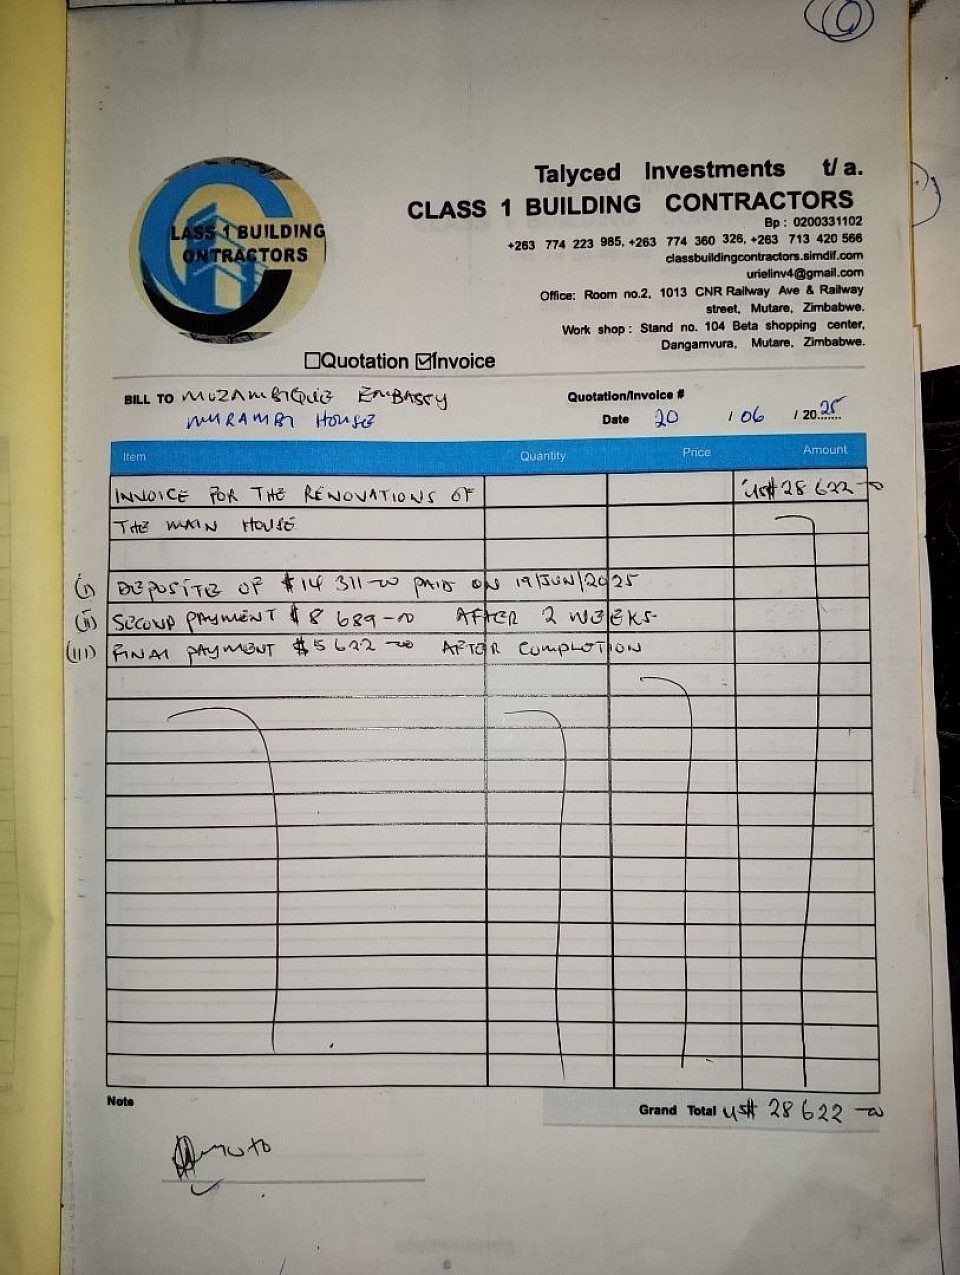 Talyced Investments t/a.
CLASS 1 BUILDING CONTRACTORS
Bp : 0200331102
+263 774 223 985, +263 774 360 326, +263 713 420 566
classbuildingcontractors.simdif.com
urielinv4@gmail.com
Office: Room no.2, 1013 CNR Railway Ave & Railway
street, Mutare, Zimbabwe.
Work shop : Stand no. 104 Beta shopping center,
Dangamvura, Mutare, Zimbabwe.
LASS 1 BUILDING
ONTRACTORS
Quotation Invoice
BILL TO MOZAMBIQUE EMBASSY
MURAMBI HOUSE
Quotation/Invoice #
Date 20 / 06 / 20 25
Item Quantity Price Amount
INVOICE FOR THE RENOVATIONS OF US$ 28 622-00
THE MAIN HOUSE
(i) DEPOSITE OF $14 311-00 PAID ON 19/JUN/2025
(ii) SECOND PAYMENT $8 689-00 AFTER 2 WEEKS-
(iii) FINAL PAYMENT $5 622-00 AFTER COMPLETION
Note
Grand Total US$ 28 622-00